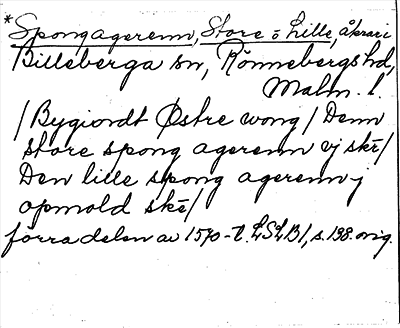 *Spongagerenn, Store o Lille, åkrar i
Billeberga sn, Rönnebergs hd,
Malm. l
/Bygiordt Østre wong/ Denn
store spong agerenn vj skē/
Den lille spong agerenn j
opmold skē/
förra delen av 1570-t. LSLB1, s. 198. orig.